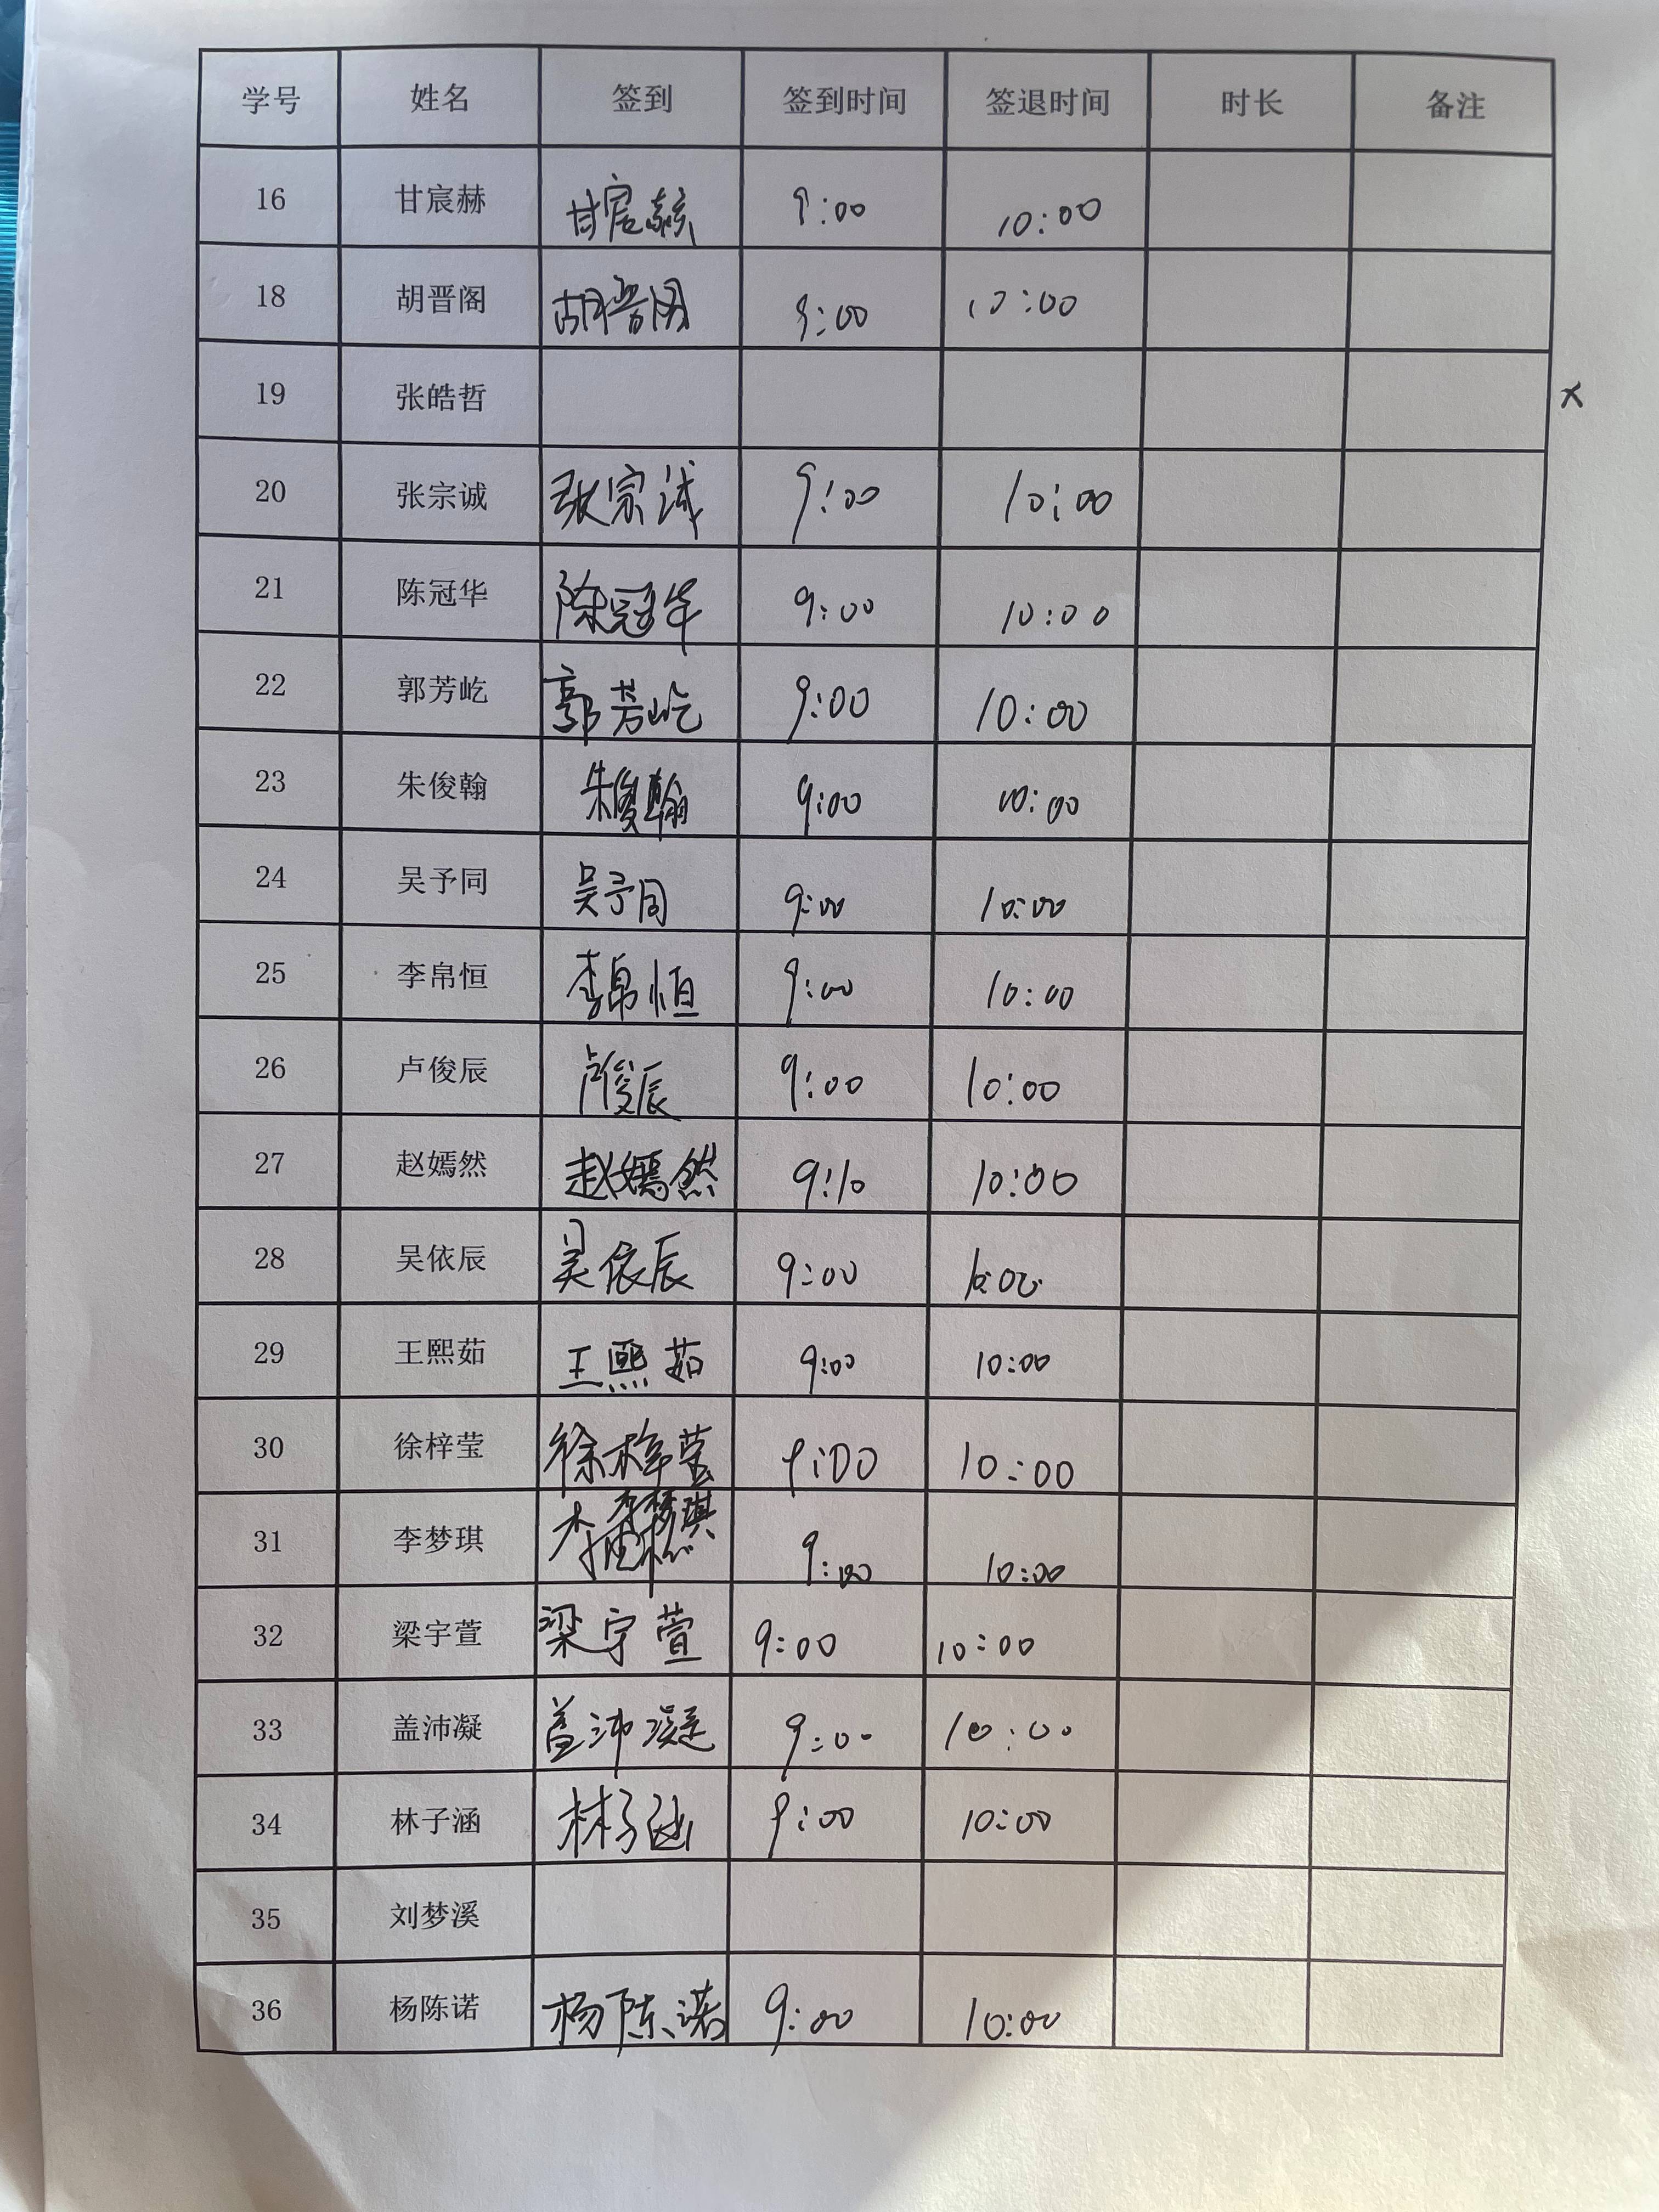 学号 姓名 签到 签到时间 签退时间 时长 备注
16 甘宸赫 甘宸赫 9:00 10:00
18 胡晋阁 胡晋阁 9:00 10:00
19 张皓哲 x
20 张宗诚 张宗诚 9:00 10:00
21 陈冠华 陈冠华 9:00 10:00
22 郭芳屹 郭芳屹 9:00 10:00
23 朱俊翰 朱俊翰 9:00 10:00
24 吴予同 吴予同 9:00 10:00
25 李帛恒 李帛恒 9:00 10:00
26 卢俊辰 卢俊辰 9:00 10:00
27 赵嫣然 赵嫣然 9:10 10:00
28 吴依辰 吴依辰 9:00 10:00
29 王熙茹 王熙茹 9:00 10:00
30 徐梓莹 徐梓莹 9:00 10:00
31 李梦琪 李梦琪 9:00 10:00
32 梁宇萱 梁宇萱 9:00 10:00
33 盖沛凝 盖沛凝 9:00 10:00
34 林子涵 林子涵 9:00 10:00
35 刘梦溪
36 杨陈诺 杨陈诺 9:00 10:00